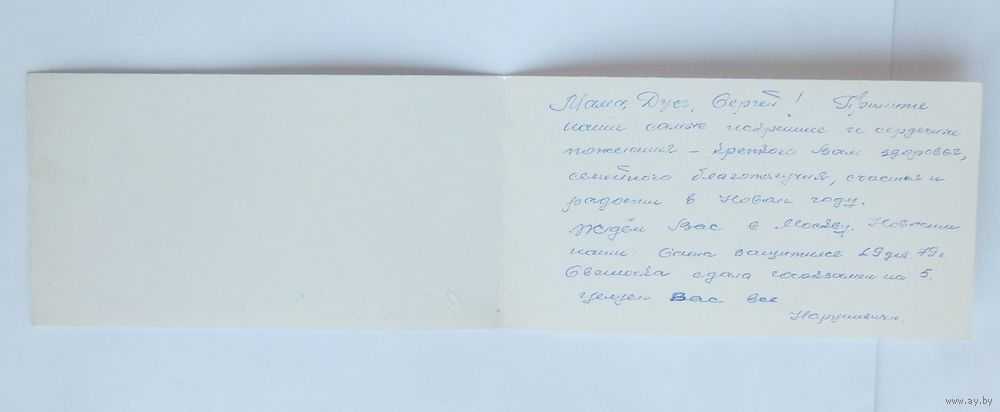 Мама, Дуся, Сергей! Примите
наши самые искренние и сердечные
пожелания – крепкого Вам здоровья,
семейного благополучия, счастья и
радости в Новом году.
Ждём Вас в Москву. Новости
наши: Саша защитился 29 дек 79 г.
Светочка сдала госэкзамен на 5.
Целуем Вас все
www.ay.by